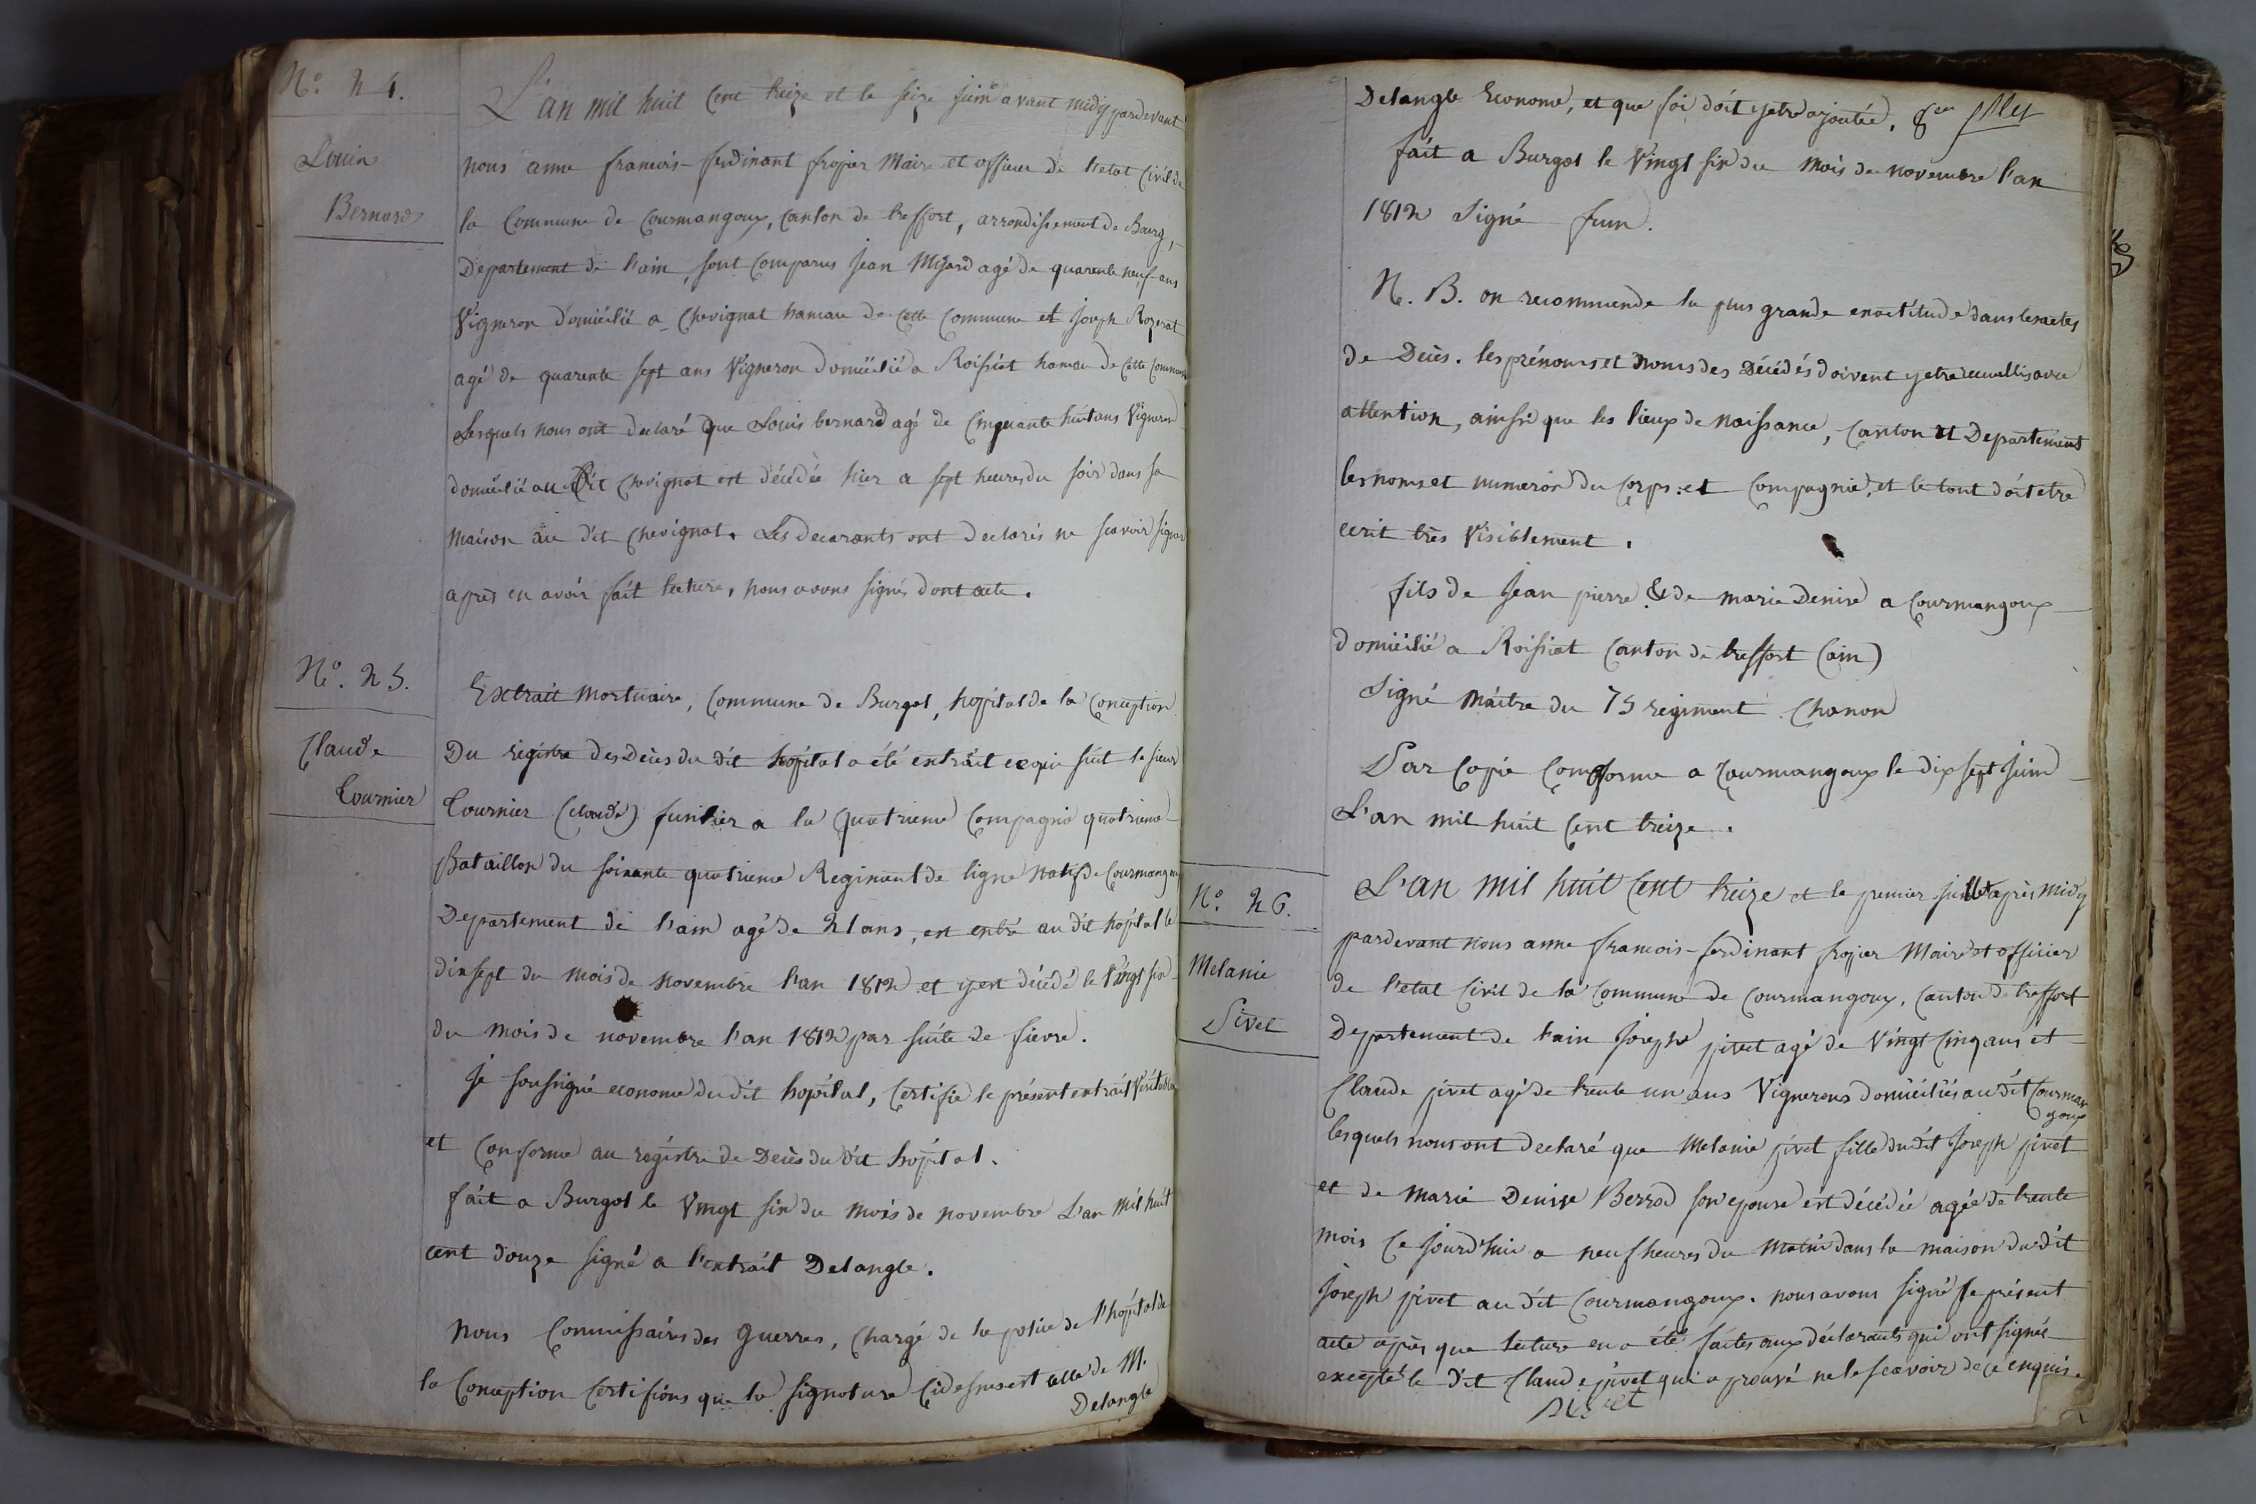 N.o 24.
Louis
Bernard
L'an mil huit Cent treize et le seize juin avant midy pardevant
nous anne francois-ferdinant frojier Maire et officier de l'etat Civil de
la Commune de Courmangoux, Canton de treffort, arrondissement de Bourg,
Departement de l'ain, sont Comparus Jean Mijard agé de quarante neuf ans
Vigneron domicilié a Chevignat hamau de Cette Commune et Joseph Rozerat
agé de quarente sept ans Vigneron domicilié a Roissiat hamau de Cette Commune
Lesquels nous ont declaré que Louis bernard agé de Cinquante huit ans Vigneron
domicilié au dit Chevignat est décédée hier a sept heures du soir dans sa
maison au dit Chevignat. Les Decarants ont declarés ne scavoir signer
après en avoir fait lecture, nous avons signés dont acte.
N.o 25.
Claude
Tournier
Extrait Mortuaire, Commune de Burgol, hopital de la Conception
Du registre des Deces du dit hopital a été extrait ce qui suit le sieur
Tournier (claude) fusilier a la quatrieme Compagnie quatrieme
Bataillon du soixante quatrieme Regiment de ligne natif de Courmangoux
Departement de l'ain agé de 21 ans, est entré au dit hopital le
dix sept du mois de novembre l'an 1812 et y est décédé le Vingt six
du mois de novembre l'an 1812 par suite de fievre.
Je soussigné econome du dit hopital, Certifie le présent extrait Véritable
et Conforme au registre de Deces du dit hopital.
fait a Burgol le Vingt six du mois de novembre L'an mil huit
cent douze signé a l'extrait Delangle.
Nous Commissaires des Guerres, Chargé de la police de l'hopital de
la Conception Certifions que la signature Cidessus est celle de M.
Delangle
Delangle Econome, et que foi doit y etre ajoutée.
fait a Burgol le Vingt six du mois de novembre l'an
1812 signé
N. B. on recommende la plus grande exactitude dans les actes
de Deces. les prénoms et noms des Décédés doivent y etre accueillis avec
attention, ainsi que les lieux de naissance, Canton et Departement
les noms et numeros du Corps et Compagnie, et le tout doit etre
ecrit très Visiblement.
fils de Jean pierre & de marie Denise a Courmangoux
domicilié a Roissiat Canton de treffort (ain)
Signé Maitre du 75 regiment Chanon
Par Copie Conforme a Courmangoux le dix sept Juin
L'an mil huit Cent treize.
N.o 26.
Melanie
Pivet
L'an mil huit Cent treize et le premier juillet après midy
pardevant nous anne francois-ferdinant frojier Maire et officier
de l'etat Civil de la Commune de Courmangoux, Canton de treffort
Departement de l'ain Joseph pivet agé de Vingt Cinq ans et
Claude pivet agé de trente un ans Vignerons domiciliés au dit Courman
goux
lesquels nous ont declaré que Melanie pivet fille du dit Joseph pivet
et de Marie Denise Berrod son epouse est décédée agée de trente
mois Ce jourd'hui a neuf heures du Matin dans la maison du dit
Joseph pivet au dit Courmangoux. nous avons signé le présent
acte après que lecture en a été faites aux déclarants qui ont signés
excepté le dit Claude pivet qui a prouvé ne le scavoir de ce enquis.